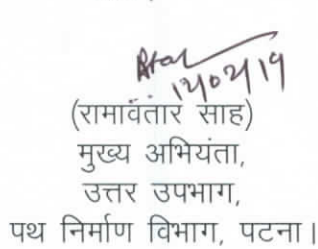 12/02/19
(रामावंतार साह)
मुख्य अभियंता,
उत्तर उपभाग,
पथ निर्माण विभाग, पटना।